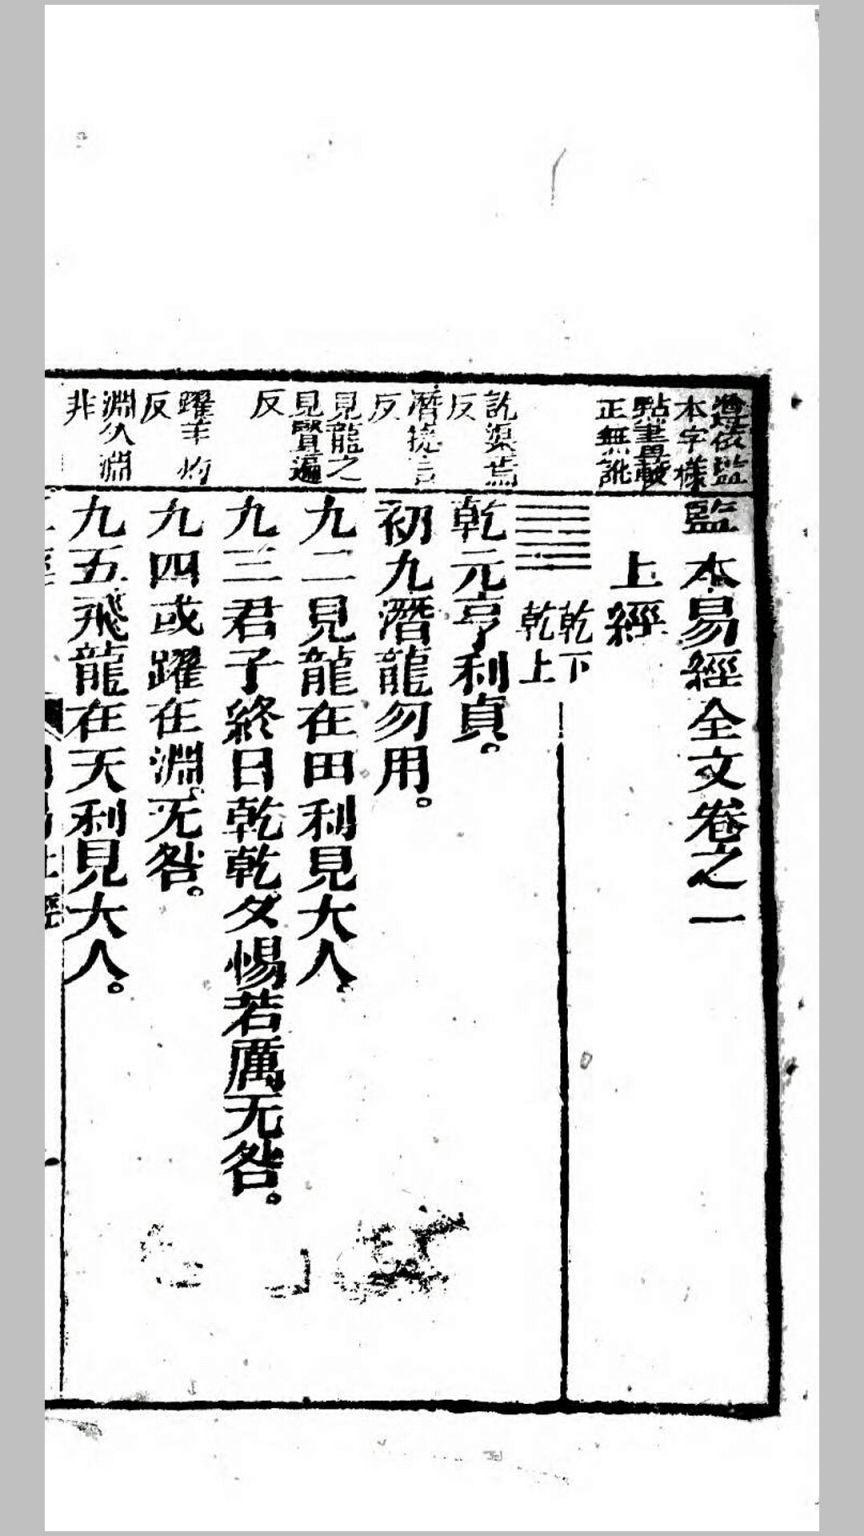 遵依監
本字樣
點畫
正無訛
監本易經全文卷之一
上經
乾下
乾上
訖渠焉
反
乾元亨利貞。
潛捷言
反
初九潛龍勿用。
見龍之
見賢遍
反
九二見龍在田利見大人。
九三君子終日乾乾夕惕若厲无咎。
躍羊灼
反
九四或躍在淵、无咎。
淵久淵
非
九五飛龍在天利見大人。